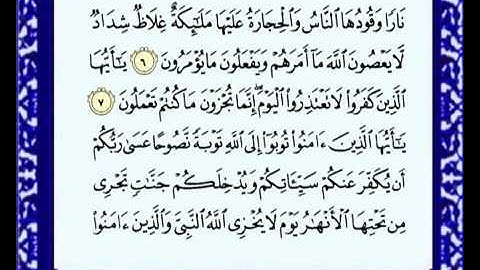 نَارًا وَقُودُهَا ٱلنَّاسُ وَٱلْحِجَارَةُ عَلَيْهَا مَلَـٰٓئِكَةٌ غِلَاظٌ شِدَادٌ
لَّا يَعْصُونَ ٱللَّهَ مَآ أَمَرَهُمْ وَيَفْعَلُونَ مَا يُؤْمَرُونَ ٦ يَـٰٓأَيُّهَا
ٱلَّذِينَ كَفَرُوا۟ لَا تَعْتَذِرُوا۟ ٱلْيَوْمَ ۖ إِنَّمَا تُجْزَوْنَ مَا كُنتُمْ تَعْمَلُونَ ٧
يَـٰٓأَيُّهَا ٱلَّذِينَ ءَامَنُوا۟ تُوبُوٓا۟ إِلَى ٱللَّهِ تَوْبَةً نَّصُوحًا عَسَىٰ رَبُّكُمْ
أَن يُكَفِّرَ عَنكُمْ سَيِّـَٔاتِكُمْ وَيُدْخِلَكُمْ جَنَّـٰتٍ تَجْرِى
مِن تَحْتِهَا ٱلْأَنْهَـٰرُ يَوْمَ لَا يُخْزِى ٱللَّهُ ٱلنَّبِىَّ وَٱلَّذِينَ ءَامَنُوا۟